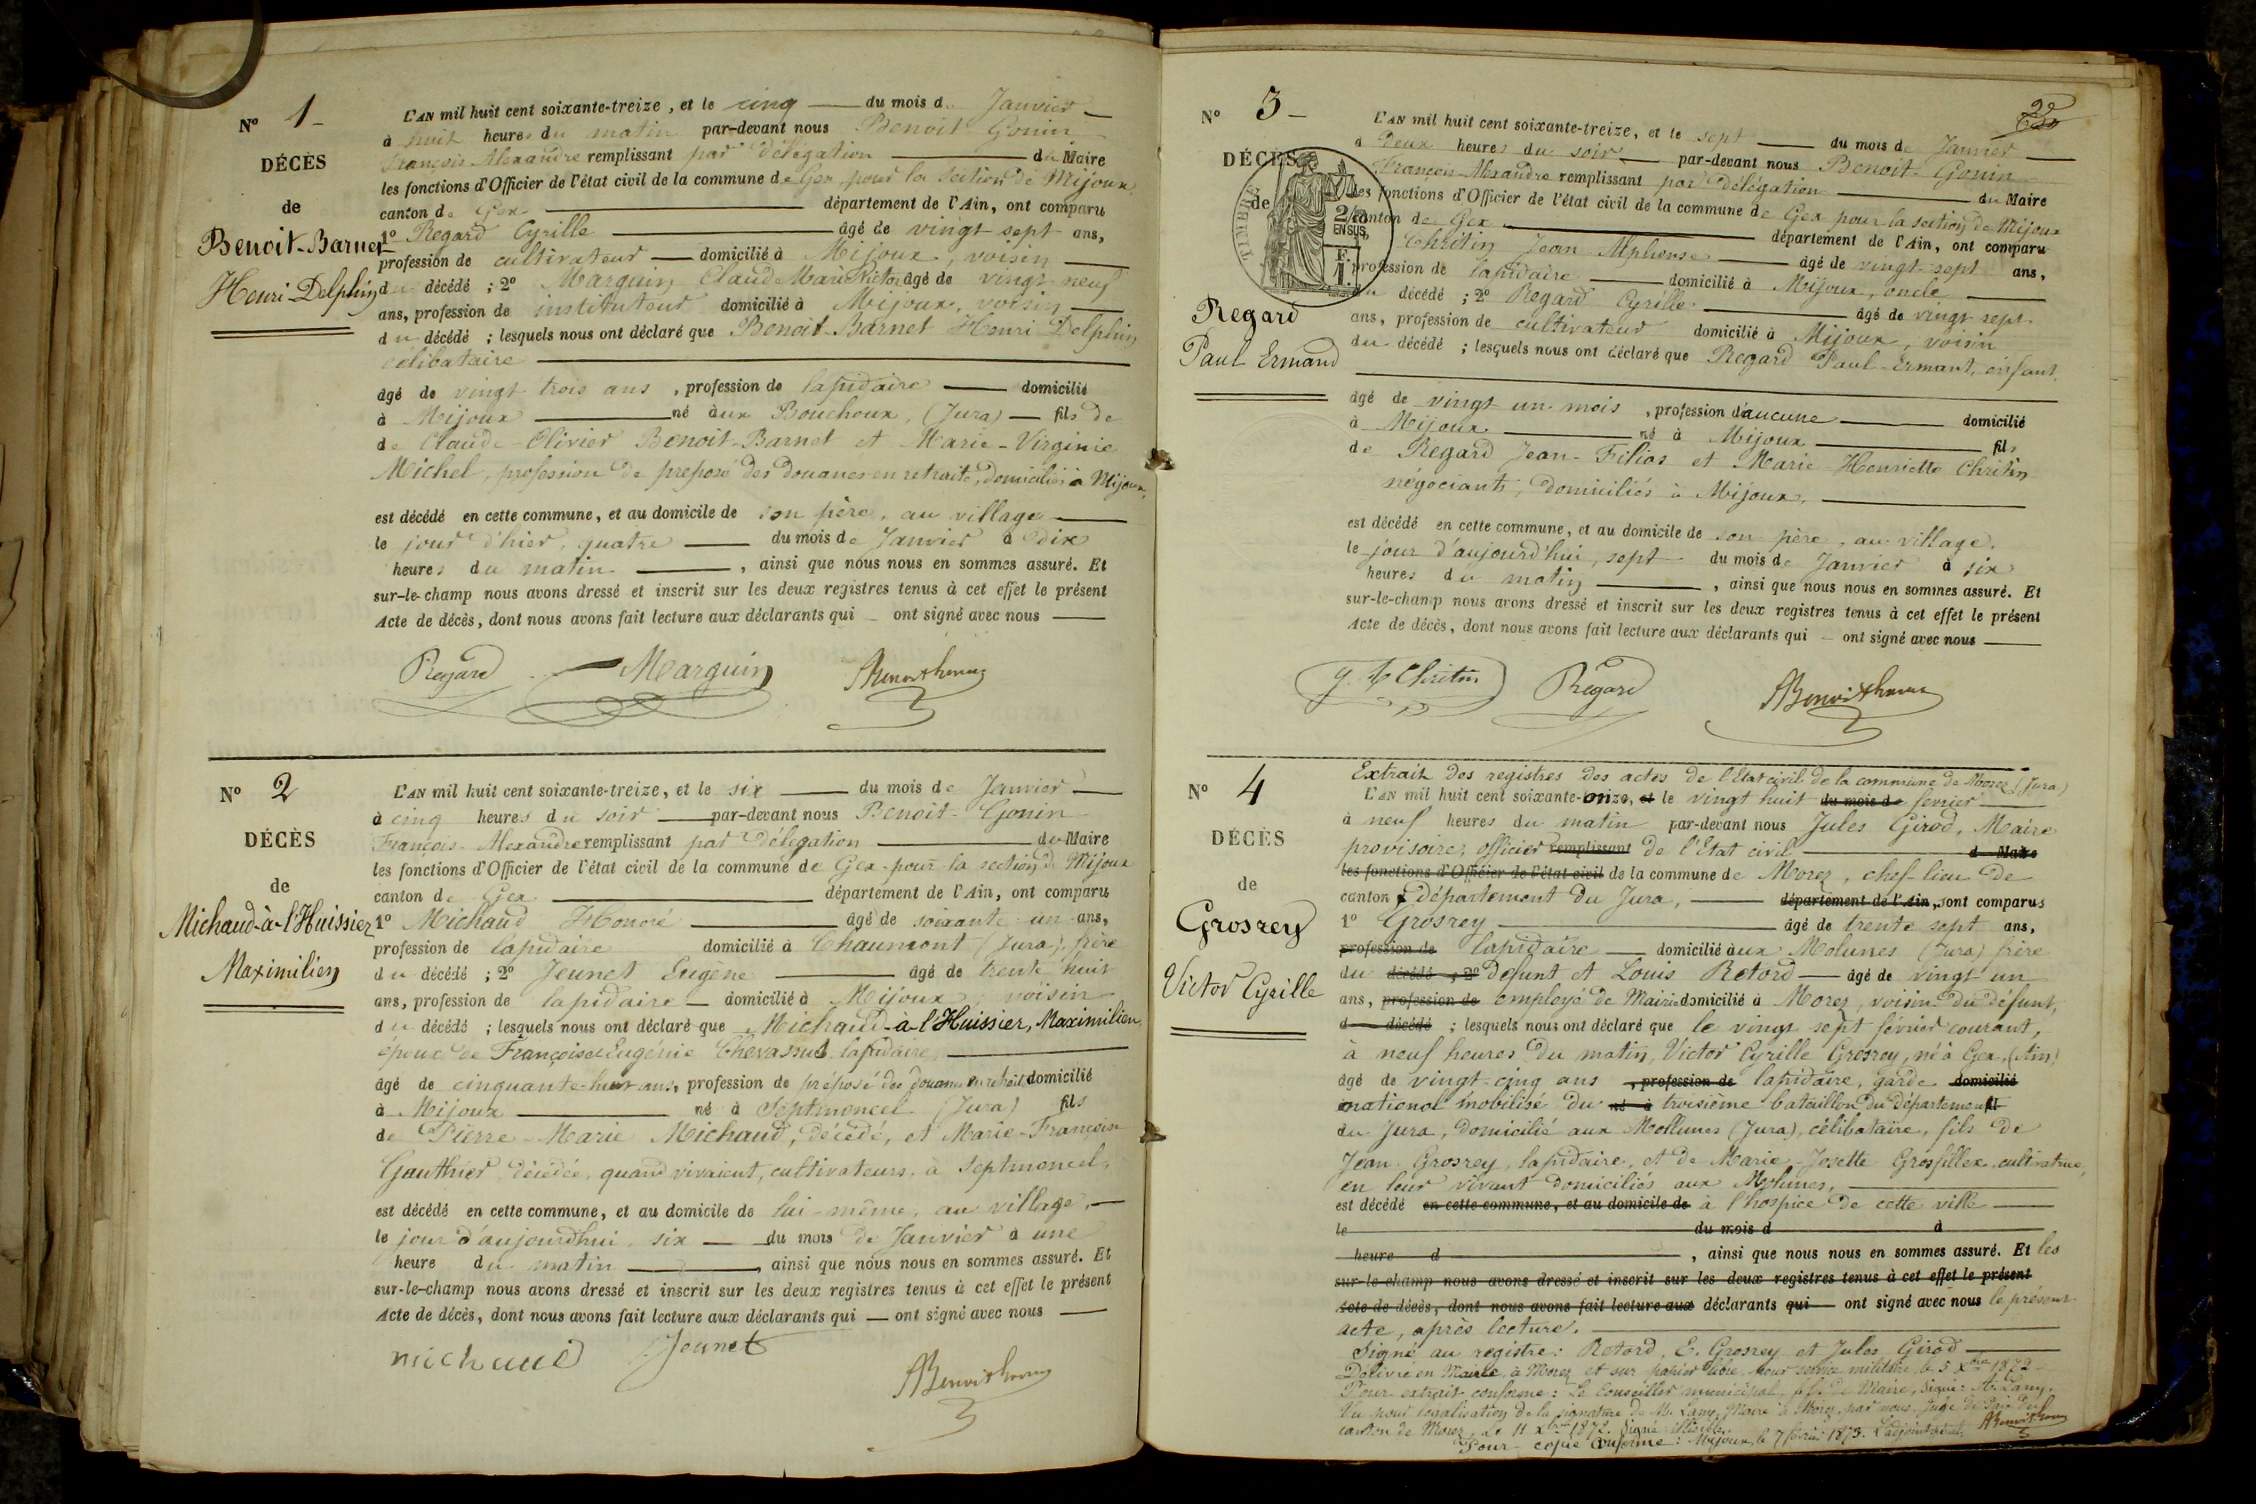 Nº 1
DÉCÈS
de
Benoit-Barnet
Henri Delphin
L'AN mil huit cent soixante-treize, et le cinq du mois de Janvier
à huit heures du matin par-devant nous Benoit Gonin
François Alexandre remplissant par délégation du Maire
les fonctions d'Officier de l'état civil de la commune de Gex, pour la section de Mijoux
canton de Gex département de l'Ain, ont comparu
1º Regard Cyrille âgé de vingt sept ans,
profession de cultivateur domicilié à Mijoux, voisin
du décédé ; 2º Marquin Claude Marie Victor âgé de vingt neuf
ans, profession de instituteur domicilié à Mijoux, voisin
du décédé ; lesquels nous ont déclaré que Benoit-Barnet Henri Delphin
célibataire
âgé de vingt trois ans, profession de lapidaire domicilié
à Mijoux né aux Bouchoux, (Jura) fils de
de Claude-Olivier Benoit-Barnet et Marie-Virginie
Michel, profession de préposé des douanes en retraite, domiciliés à Mijoux,
est décédé en cette commune, et au domicile de son père, au village
le jour d'hier, quatre du mois de Janvier à dix
heures du matin, ainsi que nous nous en sommes assuré. Et
sur-le-champ nous avons dressé et inscrit sur les deux registres tenus à cet effet le présent
Acte de décès, dont nous avons fait lecture aux déclarants qui ont signé avec nous
Regard Marquin
Nº 2
DÉCÈS
de
Michaud-à-l'Huissier
Maximilien
L'AN mil huit cent soixante-treize, et le six du mois de Janvier
à cinq heures du soir par-devant nous Benoit-Gonin
François-Alexandre remplissant par délégation du Maire
les fonctions d'Officier de l'état civil de la commune de Gex pour la section de Mijoux
canton de Gex département de l'Ain, ont comparu
1º Michaud Honoré âgé de soixante-un ans,
profession de lapidaire domicilié à Chaumont (Jura), frère
du décédé ; 2º Jeunet Eugène âgé de trente huit
ans, profession de lapidaire domicilié à Mijoux, voisin
du décédé ; lesquels nous ont déclaré que Michaud-à-l'Huissier, Maximilien,
époux de Françoise Eugénie Chevassus, lapidaire,
âgé de cinquante-huit ans, profession de préposé des douanes en retraite domicilié
à Mijoux né à Septmoncel (Jura) fils
de Pierre-Marie Michaud, décédé, et Marie-Françoise
Gauthier décédée, quand vivaient, cultivateurs, à Septmoncel,
est décédé en cette commune, et au domicile de lui-même, au village,
le jour d'aujourd'hui six du mois de Janvier à une
heure du matin, ainsi que nous nous en sommes assuré. Et
sur-le-champ nous avons dressé et inscrit sur les deux registres tenus à cet effet le présent
Acte de décès, dont nous avons fait lecture aux déclarants qui ont signé avec nous
michaud Jeunet
Nº 3
DÉCÈS
de
Regard
Paul Ermand
TIMBRE
2/10
EN SUS
F.
1.
L'AN mil huit cent soixante-treize, et le sept du mois de Janvier
à deux heures du soir par-devant nous Benoit-Gonin
François-Alexandre remplissant par délégation du Maire
les fonctions d'Officier de l'état civil de la commune de Gex pour la section de Mijoux
canton de Gex département de l'Ain, ont comparu
Chritin Jean Alphonse âgé de vingt-sept ans,
profession de lapidaire domicilié à Mijoux, oncle
du décédé ; 2º Regard Cyrille âgé de vingt sept
ans, profession de cultivateur domicilié à Mijoux, voisin
du décédé ; lesquels nous ont déclaré que Regard Paul-Ermant, enfant,
âgé de vingt un mois, profession d'aucune domicilié
à Mijoux né à Mijoux fils
de Regard Jean-Filias et Marie-Henriette Chritin
négociants, domiciliés à Mijoux,
est décédé en cette commune, et au domicile de son père, au village,
le jour d'aujourd'hui, sept du mois de Janvier à six
heures du matin, ainsi que nous nous en sommes assuré. Et
sur-le-champ nous avons dressé et inscrit sur les deux registres tenus à cet effet le présent
Acte de décès, dont nous avons fait lecture aux déclarants qui ont signé avec nous
Chritin Regard
Nº 4
DÉCÈS
de
Grosrey
Victor Cyrille
Extrait des registres des actes de l'Etat civil de la commune de Morez (Jura)
L'AN mil huit cent soixante-onze, et le vingt huit du mois de fevrier
à neuf heures du matin par-devant nous Jules Girod, Maire
provisoire, officier remplissant de l'Etat civil d Maire
les fonctions d'Officier de l'état civil de la commune de Morez, chef-lieu de
canton, département du Jura, département de l'Ain, sont comparus
1º Grosrey âgé de trente sept ans,
profession de lapidaire domicilié aux Molunes (Jura) frère
du décédé ; 2º défunt et Louis Retord âgé de vingt-un
ans, profession de employé de Mairie domicilié à Morez, voisin du défunt,
d décédé ; lesquels nous ont déclaré que le vingt sept février courant,
à neuf heures du matin, Victor Cyrille Grosrey, né à Gex, (Ain)
âgé de vingt-cinq ans, profession de lapidaire, garde domicilié
national mobilisé du né à troisième bataillon du département
du Jura, domicilié aux Mollunes (Jura), célibataire, fils de
Jean Grosrey, lapidaire, et de Marie-Josette Grosfillex, cultivatrice,
en leur vivant domiciliés aux Molunes,
est décédé en cette commune, et au domicile de à l'hospice de cette ville
le du mois d à
heure d, ainsi que nous nous en sommes assuré. Et les
sur-le-champ nous avons dressé et inscrit sur les deux registres tenus à cet effet le présent
Acte de décès, dont nous avons fait lecture aux déclarants qui ont signé avec nous le présent
acte, après lecture.
Signé au registre : Retord, E. Grosrey et Jules Girod
Délivré en Mairie, à Morez et sur papier libre pour service militaire, le 5 Xbre 1872
Pour extrait conforme : Le conseiller municipal, f.f. de Maire, signé : A. Lamy.
Vu pour légalisation de la signature de M. Lamy, Maire à Morez, par nous, Juge de Paix du
canton de Morez, Le 11 Xbre 1872. Signé : illisible.
Pour copie conforme : Mijoux, le 7 février 1873. L'adjoint spécial,